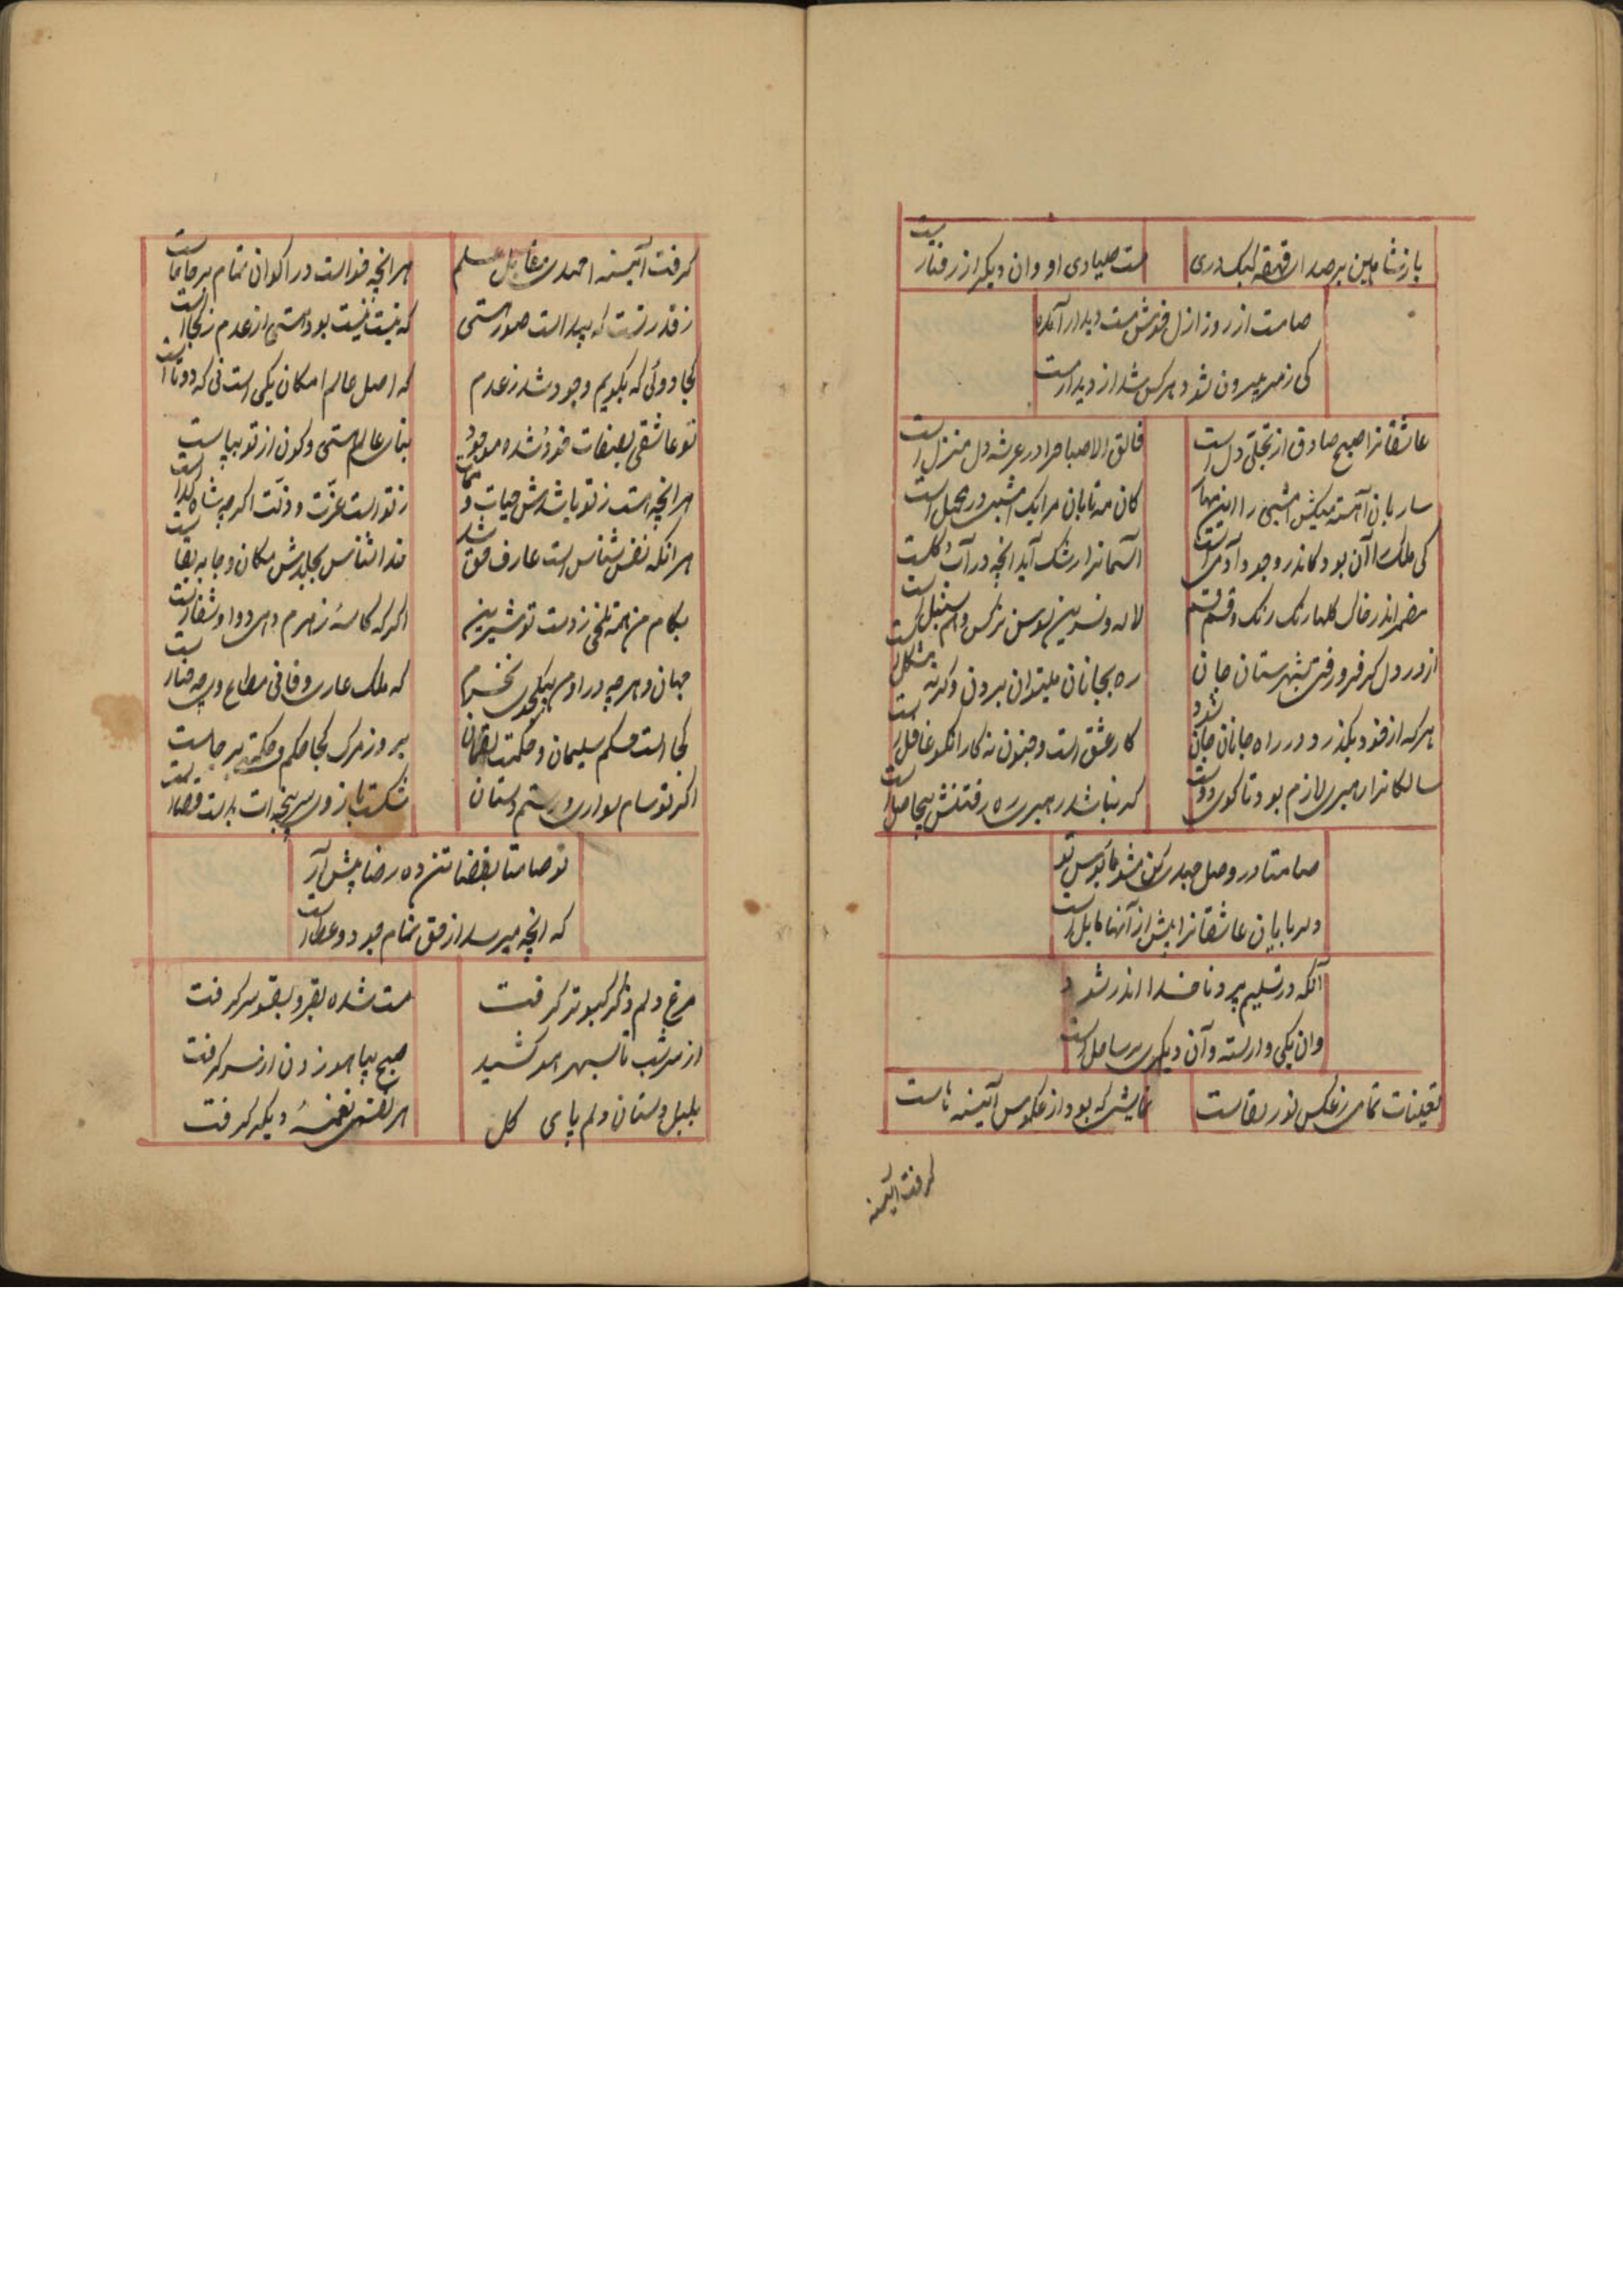 باز شاهین بر صدای قهقهه کبک دری
مست صیادی او وان دیگر از رفتار مست
صامت از روز ازل خویش مست دیدار آمده
کی ز سر بیرون شود هر کس شد از دیدار مست
عاشقانرا صبح صادق از تجلی دل است
فالق الاصباح را در عرشه دل منزل است
ساربان آهسته میکش امشبی را
کان مه تابان مرا یک امشب در محمل است
کی ملک را آن بود کاندر وجود آدم است
آسمانرا رشک آید آنچه در آب و گلست
مضمر اندر خاک گلها رنگ رنگ و قسم قسم
لاله و نسرین سوسن نرکس و هم سنبل است
از در دل کر فرو رفتی بشهرستان جان
ره بجانان میتوان بردن وکرنه مشکل است
هر که از خود بگذرد در راه جانان جان شود
کار عشق است و جنون نه کار انکو غافل است
سالکانرا رهبری لازم بود تا کوی دوست
که نباشد رهبری ره رفتنش بیحاصل است
صامتا در وصل میکن مشو مأیوس تو
دلربایان عاشقانرا بیش از آنها مایل است
آنکه در تسلیم پرد ناخدا اندر شود
وان یکی وارسته وآن دیگری بر ساحل است
تعینات تمامی ز عکس نور بقاست
نمایشی که بود از عکوس آئینه هاست
کرفت آئینه
کرفت آئینه احمدی مقابل علم
هر انچه خواست در اکوان تمام بر جا خاست
ز قدرتست که پیداست صورت هستی
که نیست نیست بود هستی از عدم ز کجاست
کجا دوئی که بگویم وجود شد ز عدم
که اصل عالم امکان یکی است نی که دوتا است
تو عاشقی بصفات خود شده موجود
بنای عالم هستی و کون از تو بپاست
هر انچه هست ز تو باشدش حیات و ممات
ز تو است عزت و ذلت اکر چه شاه کداست
هر انکه نفس شناس است عارف حق شد
خدا شناس بجا بدش مکان و جا به بقاست
بکام من همه تلخی ز دست تو شیرین
اکر که کاسه زهرم دهی دوا و شفاست
جهان و هر چه در اوهست بیکجوی نخرم
که ملک عاری و فانی متاع وی چه ضیاست
کجاست حکم سلیمان و حکمت لقمان
بروز مرک کجا حکم و حکمت بر جاست
اکر تو سام سواری و رستم دستان
شکست بازوی سرپنجه ات بدست قضاست
تو صامتا بقضا تن ده رضا پیش آر
که انچه میرسد از حق تمام جود و عطا است
مرغ دلم ذکر کبوتر کرفت
مست شده بقر و بقو سر کرفت
از سر شب تا بسحر هو کشید
صبح بیا هو زدن از سر کرفت
بلبل دستان دلم پای کل
هر نفسی نغمهٔ دیگر کرفت